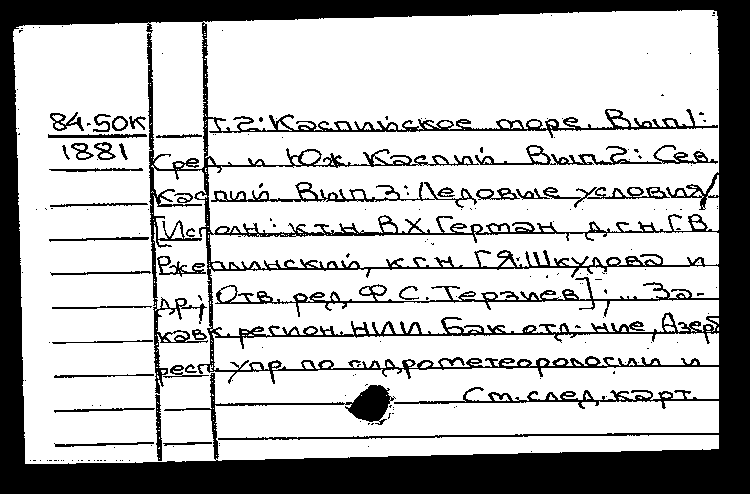 84-50К Т.2: Каспийское море. Вып.1:
1881 Сред. и Юж. Каспий. Вып.2: Сев.
Каспий. Вып.3: Ледовые условия/
[Исполн.: к.т.н. В.Х.Герман, д.г.н. Г.В.
Ржеплинский, к.г.н. Г.Я.Шкудова и
др.; Отв. ред. Ф.С.Терзиев]; ... За-
кавк. регион. НИИ. Бак. отд-ние, Азерб
респ. упр. по гидрометеорологии и
См.след.карт.